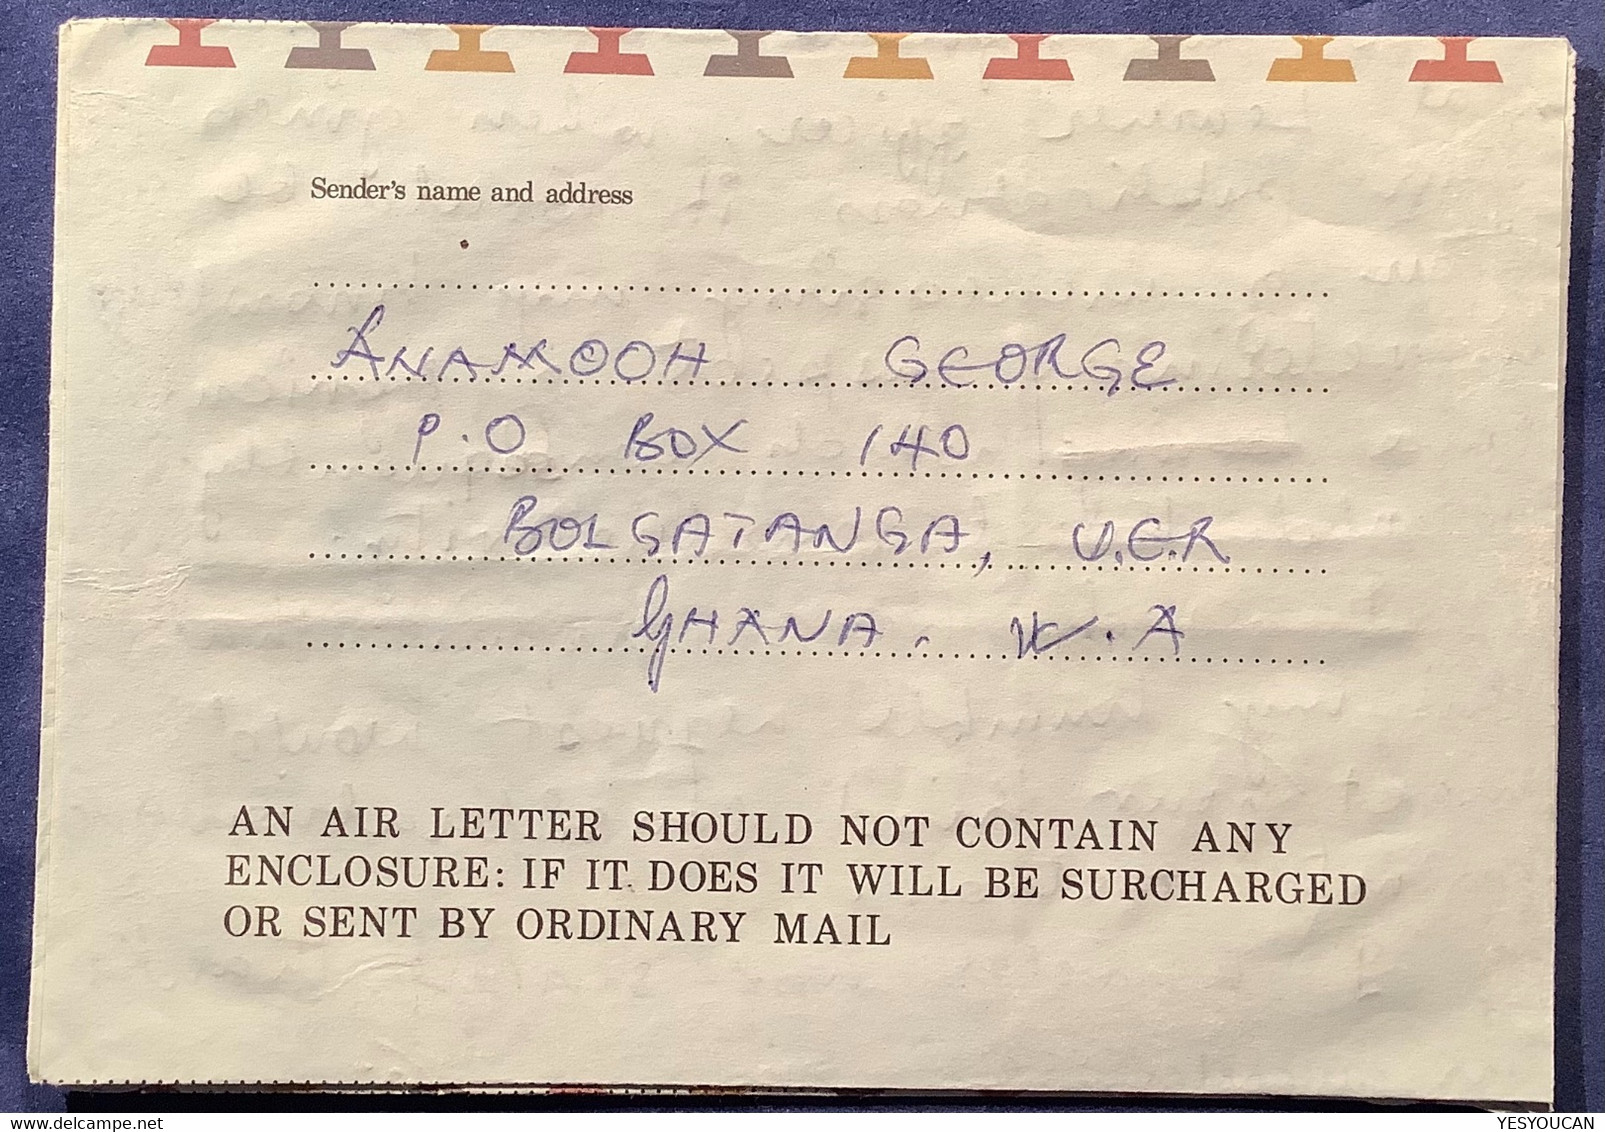 Sender's name and address
ANAMOOH GEORGE
P.O BOX 140
BOLGATANGA, U.E.R
GHANA. W.A
AN AIR LETTER SHOULD NOT CONTAIN ANY
ENCLOSURE: IF IT DOES IT WILL BE SURCHARGED
OR SENT BY ORDINARY MAIL
delcampe.net
YESYOUCAN